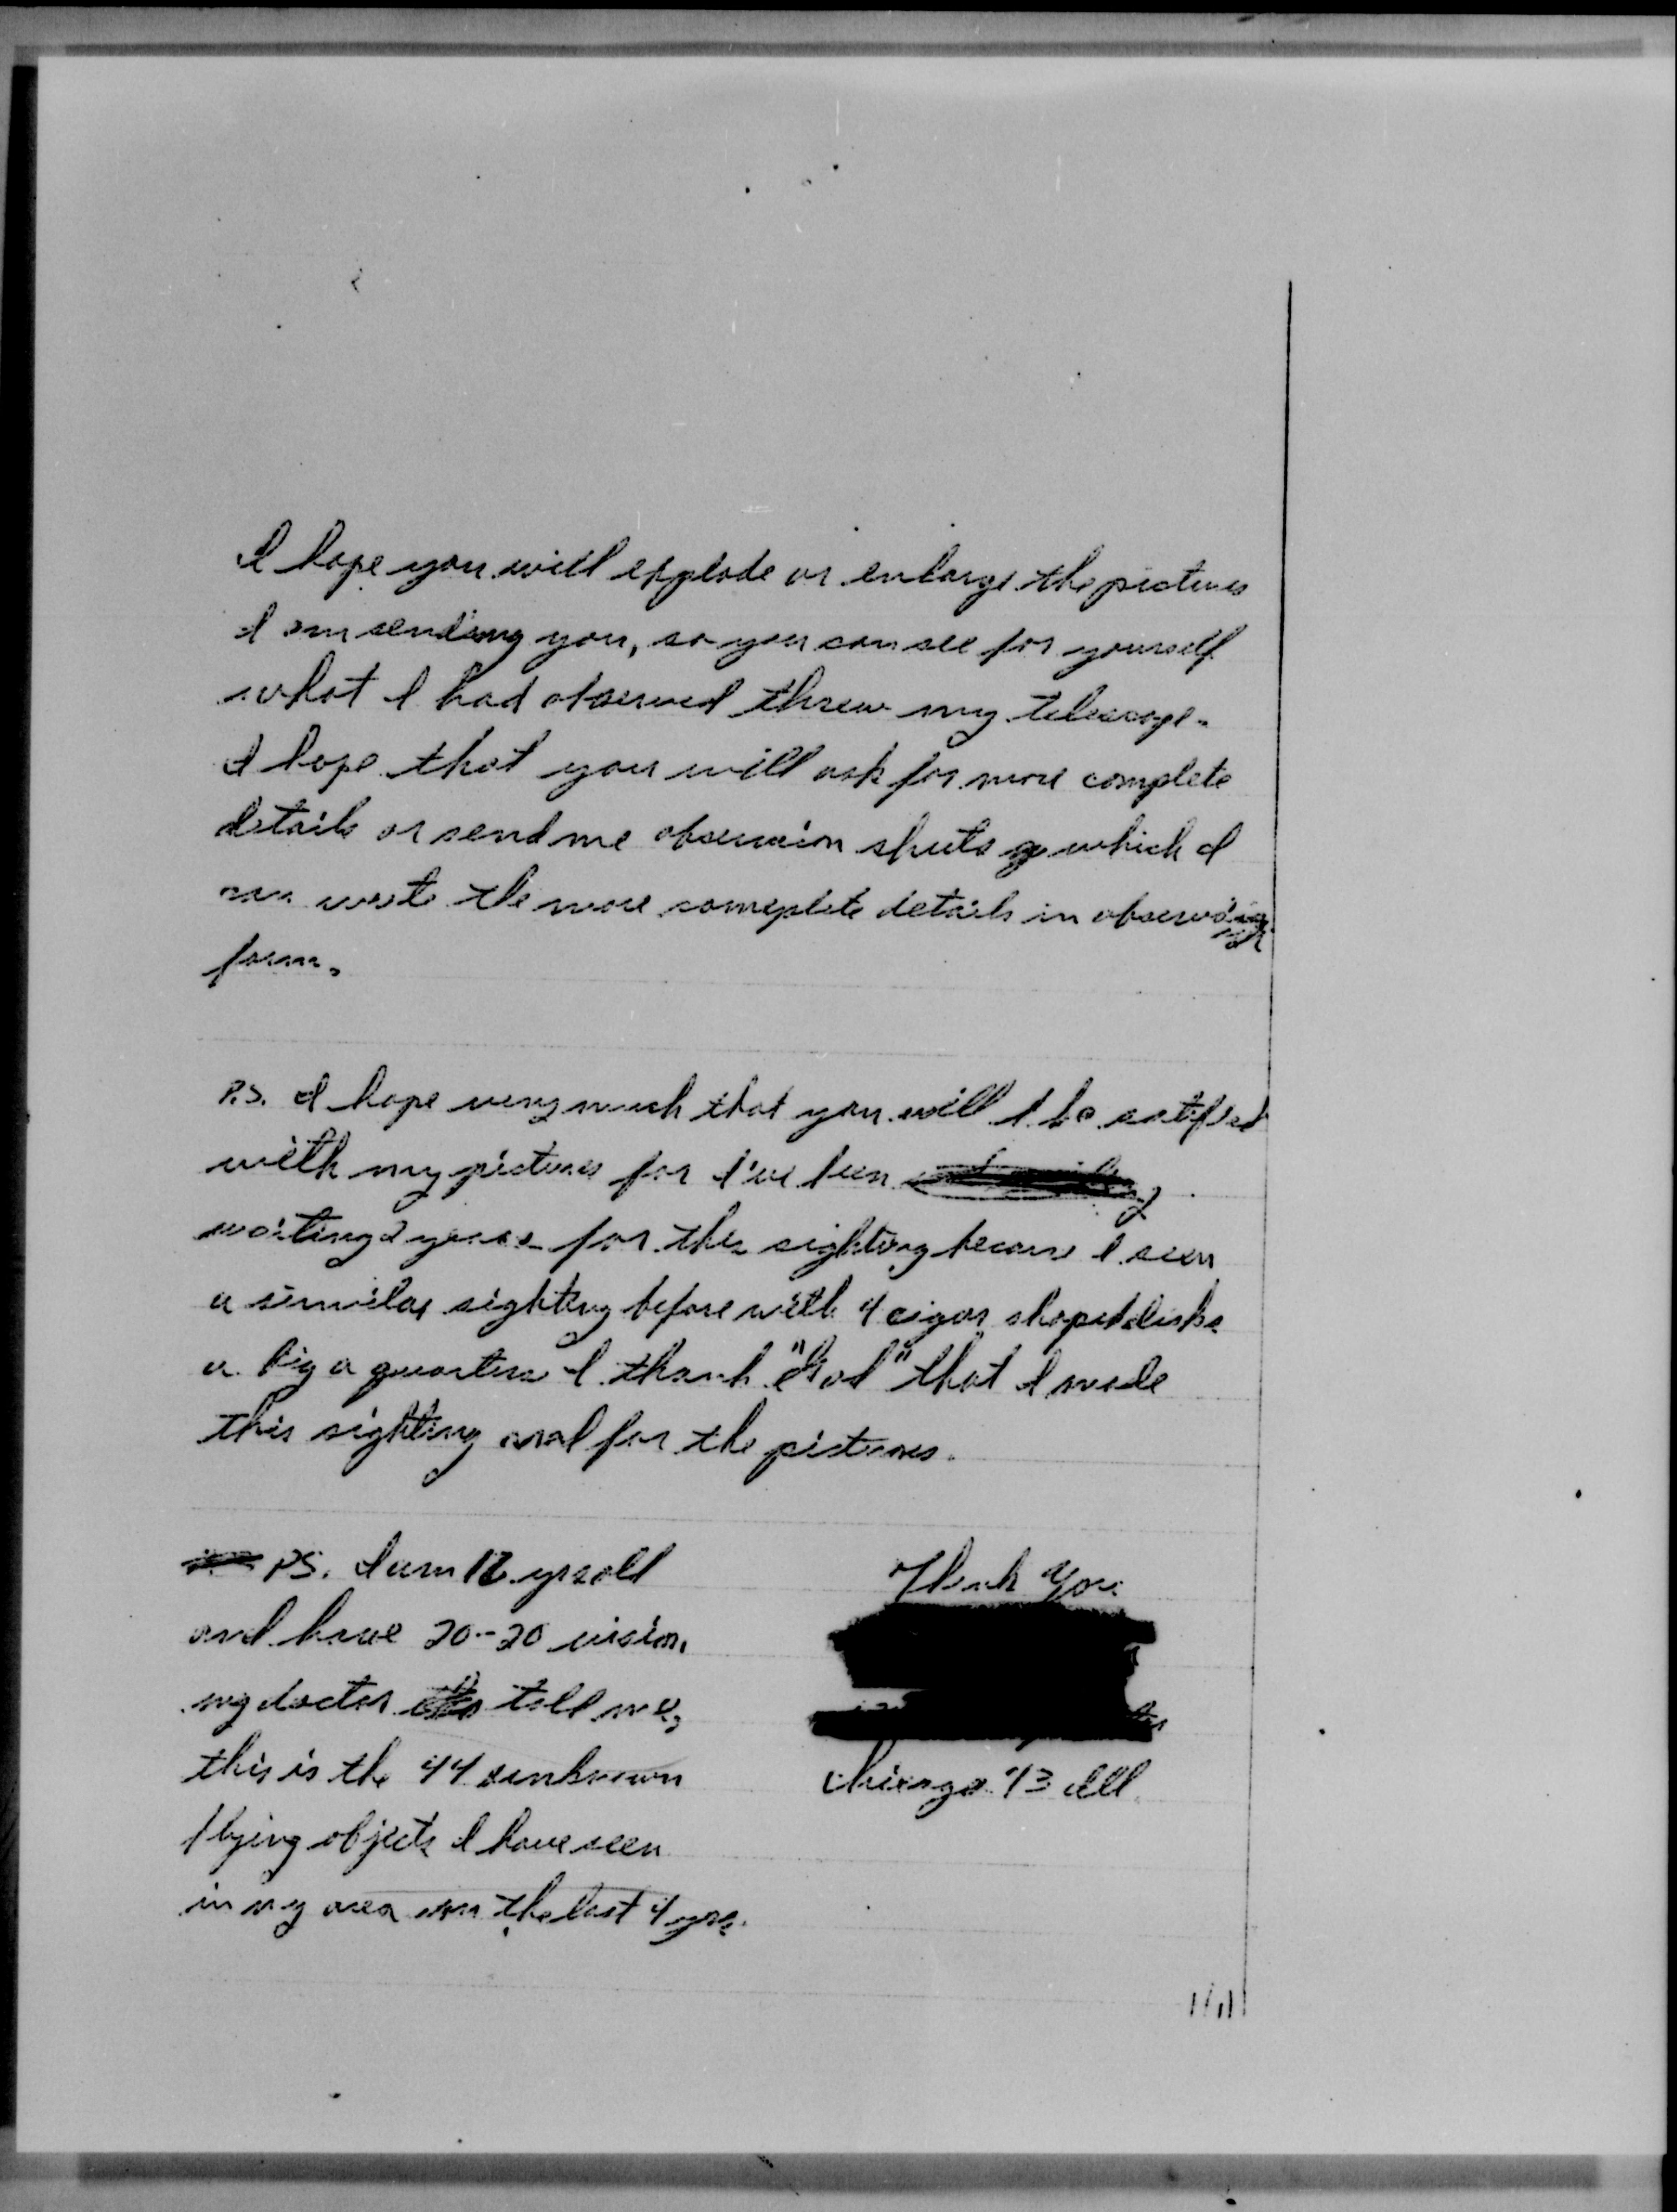 I hope you will explode or enlarge the pictures
I am sending you, so you can see for yourself
what I had observed threw my telescope.
I hope that you will ask for more complete
details or send me obseruion sheets which I
can write the more comeplete details in
form.
P.S. I hope very much that you will be satified
with my pictures for I've been
waiting 2 years for this sighting because I seen
a similar sighting before with 4 cigar shaped disks
a big a quarters I thank "God" that I made
this sighting and for the pictures.
PS. I am yrs old
and have 20-20 vision,
my doctor tell me,
this is the 44 unknown
flying objects I have seen
in my area in the last 4 yrs.
Thank You
Chicago 13 Ill